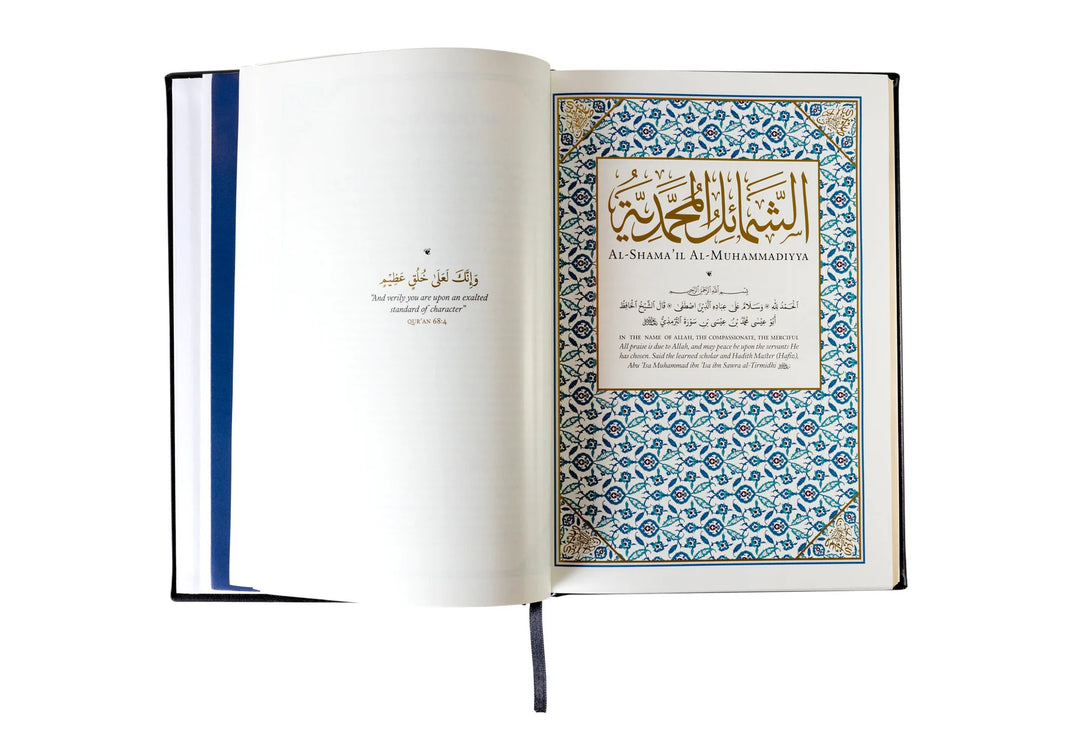 وَإِنَّكَ لَعَلَىٰ خُلُقٍ عَظِيْمٍ
"And verily you are upon an exalted
standard of character"
QUR'AN 68:4
الشَّمَائِلُ المُحَمَّدِيَّة
AL-SHAMA'IL AL-MUHAMMADIYYA
بِسْمِ اللهِ الرَّحْمٰنِ الرَّحِيْمِ
الْحَمْدُ لِلّٰهِ وَسَلَامٌ عَلَىٰ عِبَادِهِ الَّذِيْنَ اصْطَفَىٰ قَالَ الشَّيْخُ الْحَافِظُ
أَبُوْ عِيْسَىٰ مُحَمَّدُ بْنُ عِيْسَى بْنِ سَوْرَةَ التِّرْمِذِيُّ
IN THE NAME OF ALLAH, THE COMPASSIONATE, THE MERCIFUL
All praise is due to Allah, and may peace be upon the servants He
has chosen. Said the learned scholar and Hadith Master (Hafiz),
Abu 'Isa Muhammad ibn 'Isa ibn Sawra al-Tirmidhi